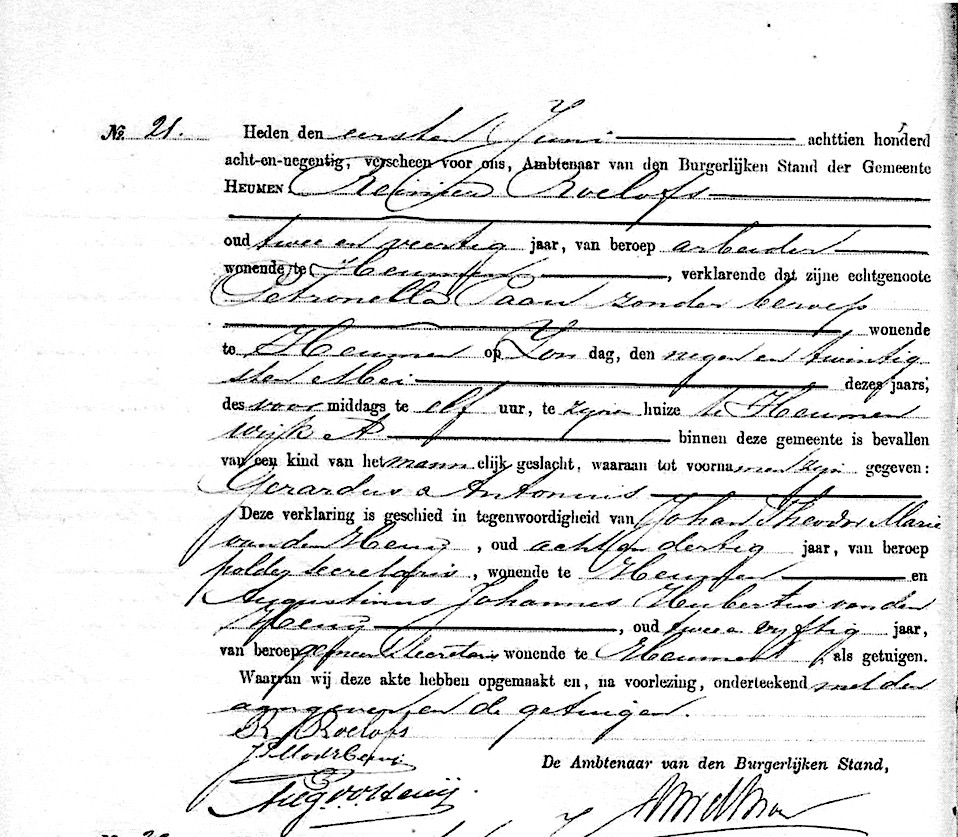 No. 21. Heden den eersten Juni achttien honderd
acht-en-negentig, verscheen voor ons, Ambtenaar van den Burgerlijken Stand der Gemeente
HEUMEN Roelofs
oud twee en veertig jaar, van beroep arbeider
wonende te Heumen, verklarende dat zijne echtgenoote
Petronella Paau zonder beroep
wonende
te Heumen op Zon dag, den negen en twintig
sten Mei dezes jaars,
des voor middags te elf uur, te zijnen huize te Heumen
wijk A binnen deze gemeente is bevallen
van een kind van het mann elijk geslacht, waaraan tot voorna men zijn gegeven:
Gerardus Antonius
Deze verklaring is geschied in tegenwoordigheid van Johan Theodor Marie
van den Heuij, oud acht en dertig jaar, van beroep
polder secretaris, wonende te Heumen en
Augustinus Johannes Hubertus van den
Heuij, oud twee en vijftig jaar,
van beroep gemeente secretaris wonende te Heumen, als getuigen.
Waarvan wij deze akte hebben opgemaakt en, na voorlezing, onderteekend met den
aangever en de getuigen.
R Roelofs
De Ambtenaar van den Burgerlijken Stand,
Aug v d Heuij